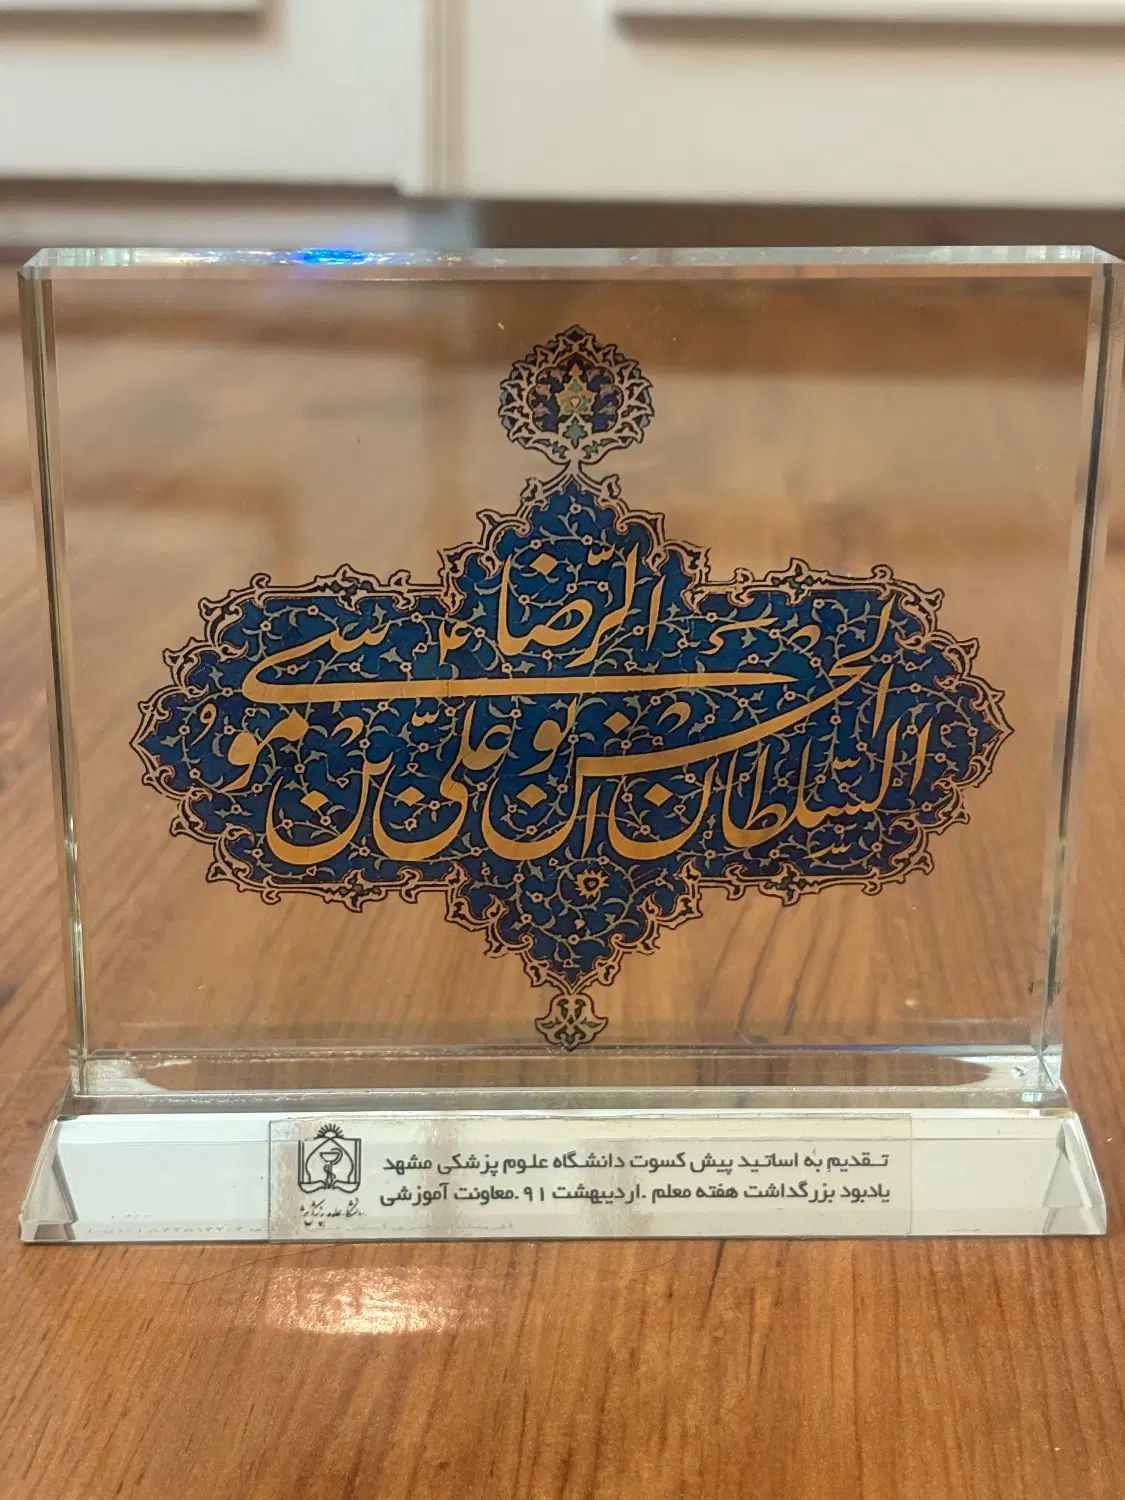 السّلطان ابوالحسن علیّ بن موسی الرّضا ع
تقدیم به اساتید پیش کسوت دانشگاه علوم پزشکی مشهد
یادبود بزرگداشت هفته معلم .اردیبهشت ۹۱.معاونت آموزشی